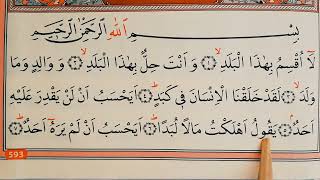 بِسْمِ اللهِ الرَّحْمٰنِ الرَّحِيْمِ
لَآ اُقْسِمُ بِهٰذَا الْبَلَدِۙ۝١ وَ اَنْتَ حِلٌّۢ بِهٰذَا الْبَلَدِۙ۝٢ وَ وَالِدٍ وَّمَا
وَلَدَۙ۝٣ لَقَدْ خَلَقْنَا الْاِنْسَانَ فِيْ كَبَدٍؕ۝٤ اَيَحْسَبُ اَنْ لَّنْ يَّقْدِرَ عَلَيْهِ
اَحَدٌۘ۝٥ يَقُوْلُ اَهْلَكْتُ مَالًا لُّبَدًاؕ۝٦ اَيَحْسَبُ اَنْ لَّمْ يَرَهٗٓ اَحَدٌؕ۝٧
593